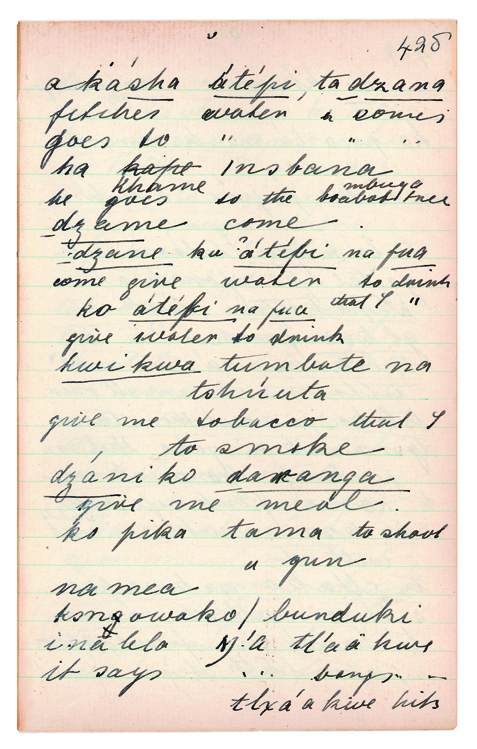 428
akásha átépi, ta dzana
fetches water, & comes
goes to " " "
ha kape Insbana
khame mbuga
he goes to the boabab tree
dzame come.
dzane ko ? átépi na fua
come give water to drink
ko átépi na fua that I "
give water to drink
kwikwa tumbate na
tshúuta
give me tobacco that I
to smoke
dzáni ko daxanga
give me meal.
ko pika tama to shoot
a gun
na mea
/ bunduki
ina lela tl'aä kwe
it says bangs
tlxá'a kwe hits